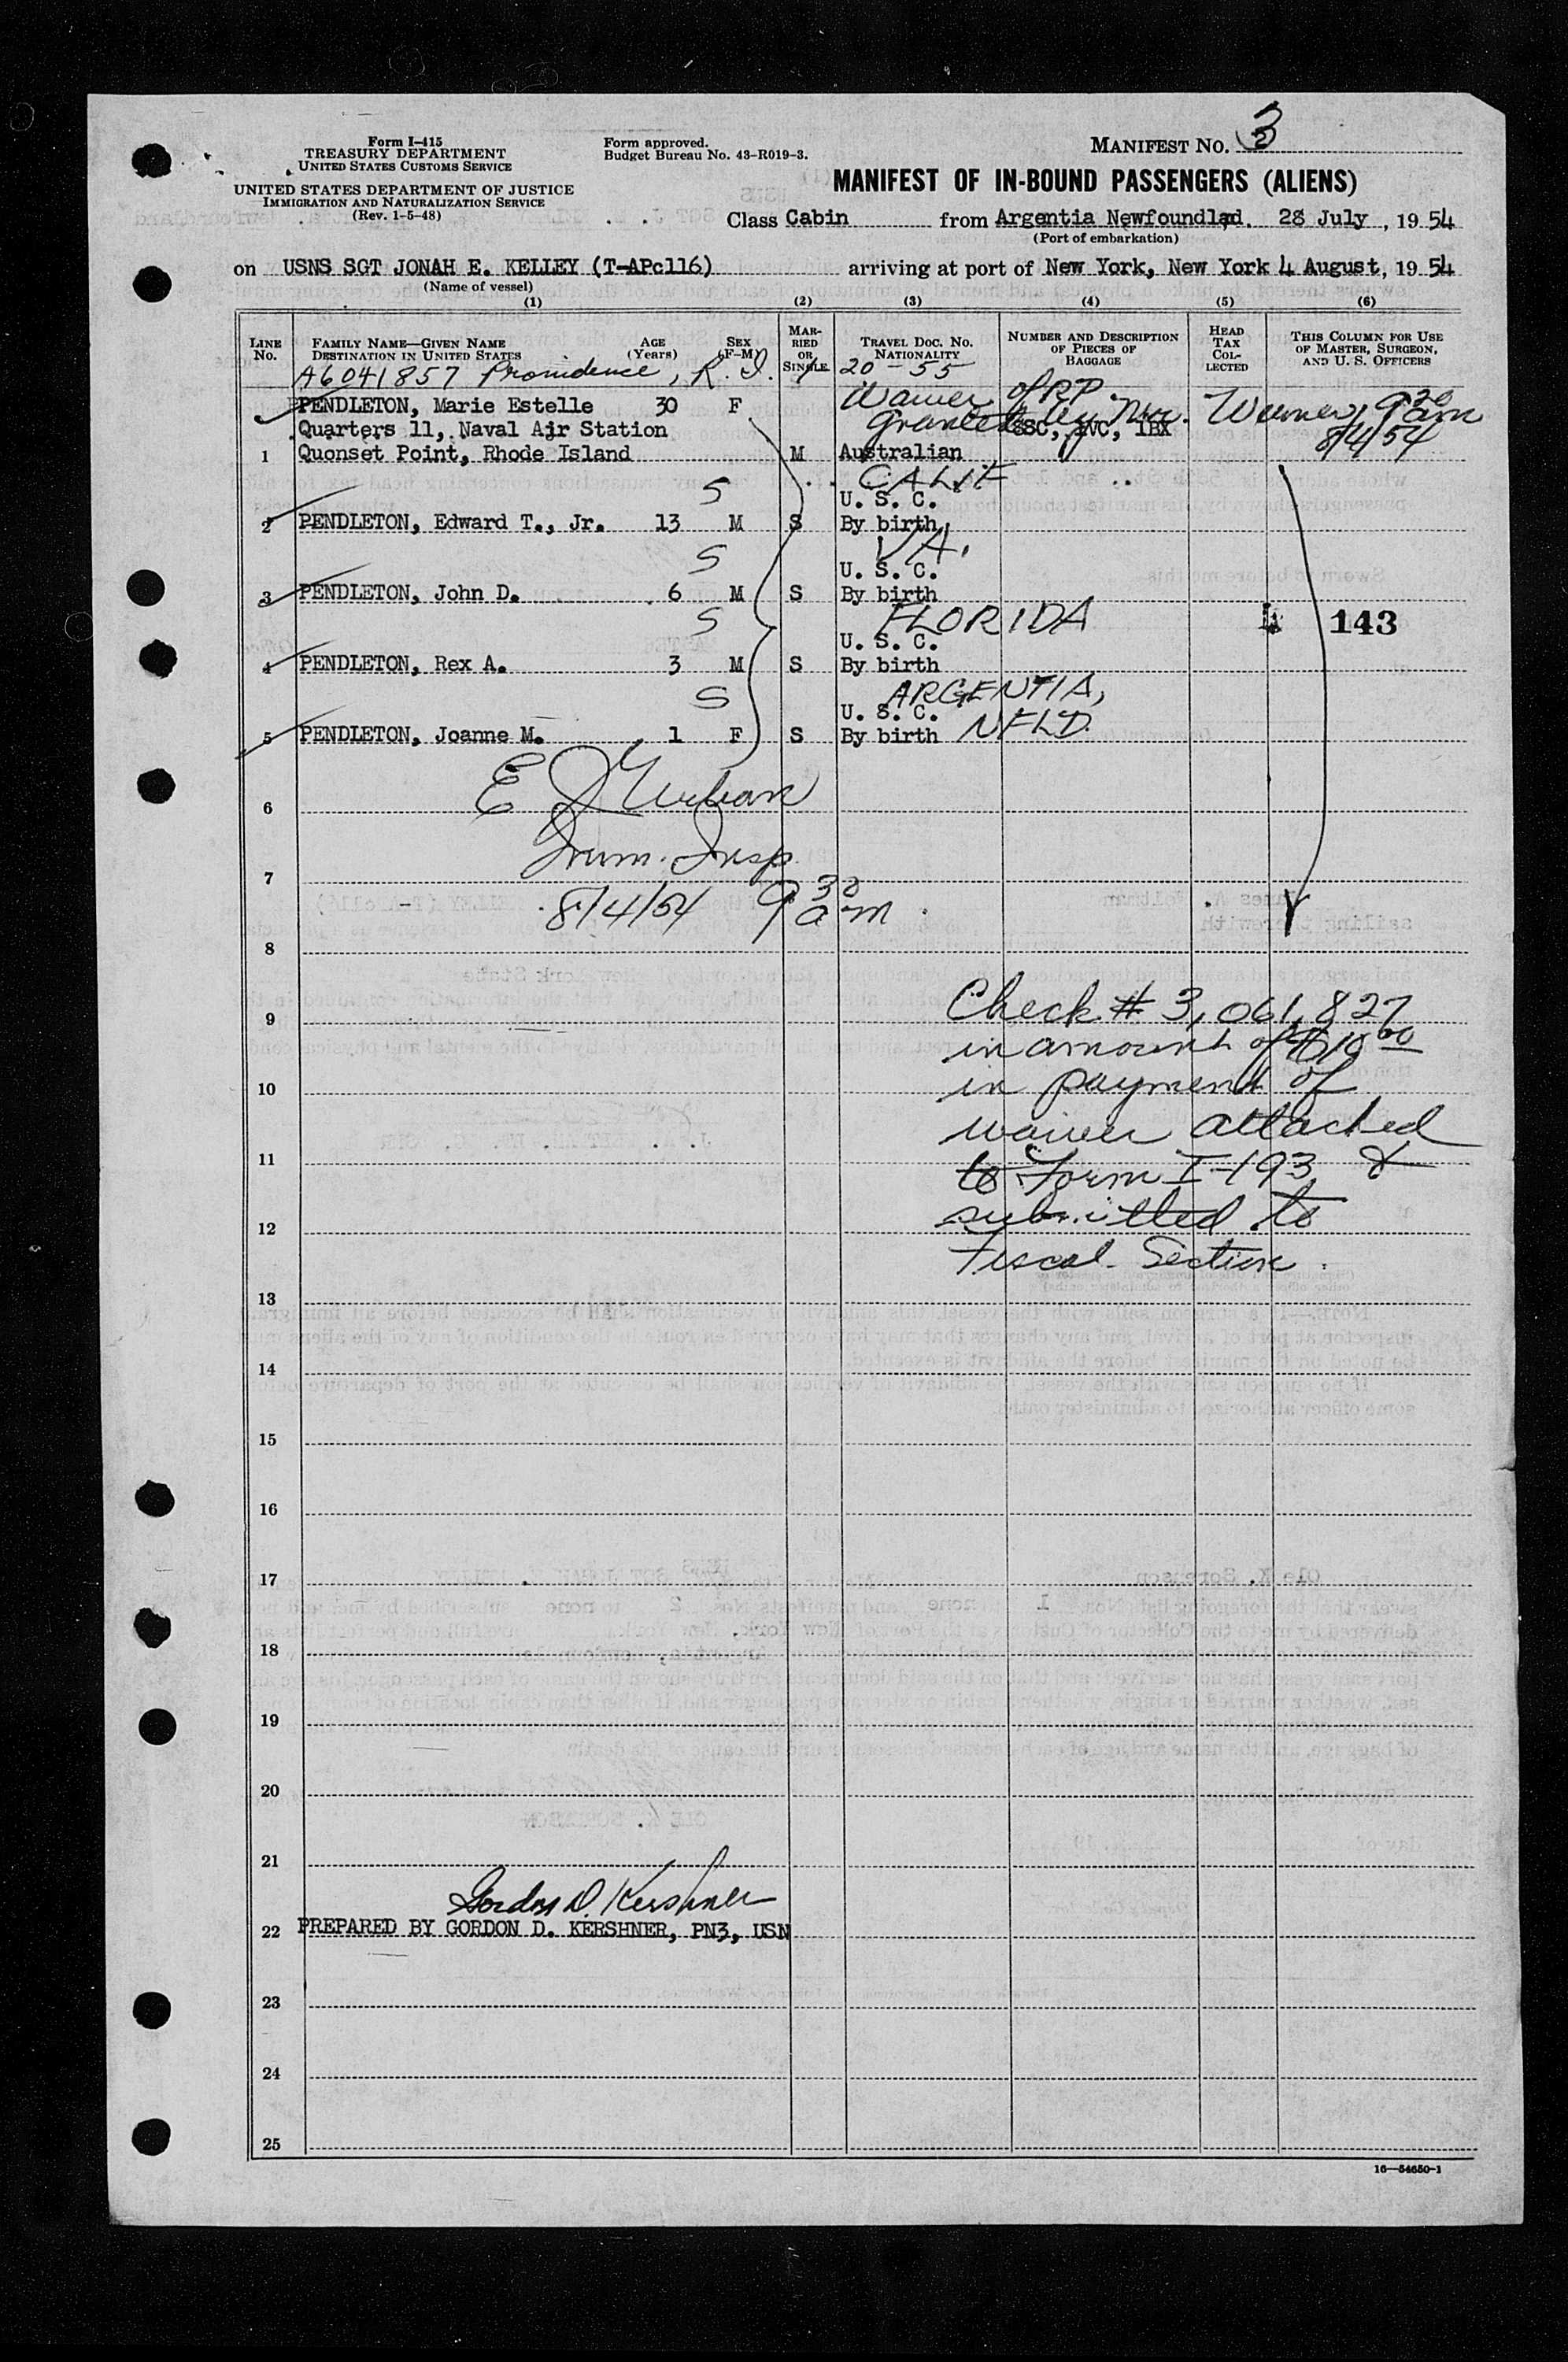 Form I-415
TREASURY DEPARTMENT
UNITED STATES CUSTOMS SERVICE
UNITED STATES DEPARTMENT OF JUSTICE
IMMIGRATION AND NATURALIZATION SERVICE
(Rev. 1-5-48)
Form approved.
Budget Bureau No. 43-R019-3.
MANIFEST NO. 3
MANIFEST OF IN-BOUND PASSENGERS (ALIENS)
Class Cabin from Argentia Newfoundlad. 28 July, 1954
(Port of embarkation)
on USNS SGT JONAH E. KELLEY (T-APc116) arriving at port of New York, New York 4 August, 1954
(Name of vessel)
(1) (2) (3) (4) (5) (6)
LINE No.
FAMILY NAME—GIVEN NAME
DESTINATION IN UNITED STATES
AGE (Years)
SEX (F-M)
MARRIED OR SINGLE
TRAVEL DOC. NO.
NATIONALITY
NUMBER AND DESCRIPTION OF PIECES OF BAGGAGE
HEAD TAX COLLECTED
THIS COLUMN FOR USE OF MASTER, SURGEON, AND U. S. OFFICERS
A6041857 Providence, R.I. 20-55
PENDLETON, Marie Estelle 30 F Waiver of P.P.
Quarters 11, Naval Air Station Granted by 9 30 am
SSC, 1BX
8/4/54
1 Quonset Point, Rhode Island M Australian
S CALIF
U. S. C.
2 PENDLETON, Edward T., Jr. 13 M S By birth
S VA.
U. S. C.
3 PENDLETON, John D. 6 M S By birth
S FLORIDA 143
U. S. C.
4 PENDLETON, Rex A. 3 M S By birth
S ARGENTIA,
U. S. C. NFLD.
5 PENDLETON, Joanne M. 1 F S By birth
6 E J Urban
7 Imm. Insp
8/4/54 9 30 am
8
9 Check # 3,061,827
in amount of $10 00
10 in payment of
waiver attached
11 to Form I-193 &
12 submitted to
Fiscal Section.
13
14
15
16
17
18
19
20
21
Gordon D. Kershner
22 PREPARED BY GORDON D. KERSHNER, PN3, USN
23
24
25
16—54650-1